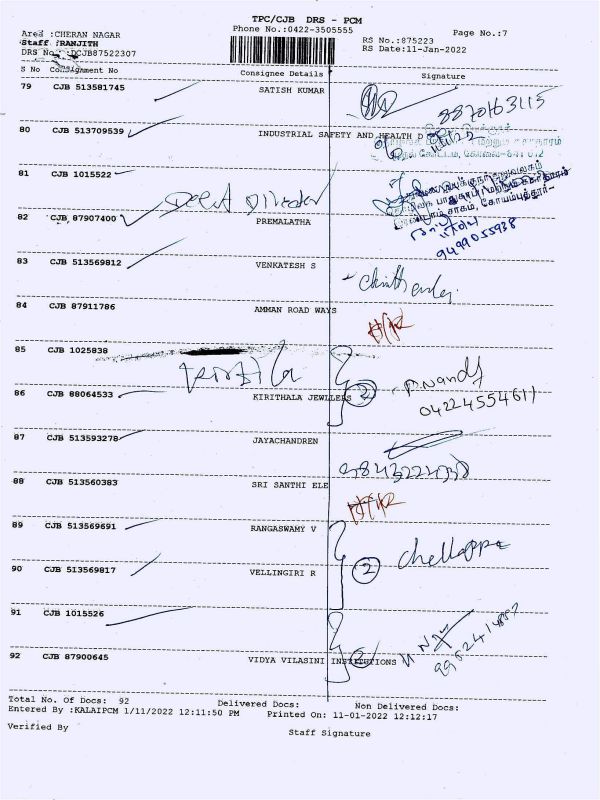 TPC/CJB DRS - PCM
Ared :CHERAN NAGAR
Phone No.:0422-3505555
Page No.:7
Staff :RANJITH
RS No.:875223
DRS No.:DCJB87522307
RS Date:11-Jan-2022
S No Consignment No Consignee Details Signature
79 CJB 513581745 SATISH KUMAR
8870163115
80 CJB 513709539 INDUSTRIAL SAFETY AND HEALTH D
81 CJB 1015522
82 CJB 87907400 PREMALATHA
9499055938
83 CJB 513569812 VENKATESH S
84 CJB 87911786 AMMAN ROAD WAYS
85 CJB 1025838
86 CJB 88064533 KIRITHALA JEWLLERS 2 P. Nandf
04224554611
87 CJB 513593278 JAYACHANDREN
88 CJB 513560383 SRI SANTHI ELE
89 CJB 513569691 RANGASWAMY V
Chellappa
90 CJB 513569817 VELLINGIRI R 2
91 CJB 1015526
92 CJB 87900645 VIDYA VILASINI INSTITUTIONS
Total No. Of Docs: 92 Delivered Docs: Non Delivered Docs:
Entered By :KALAIPCM 1/11/2022 12:11:50 PM Printed On: 11-01-2022 12:12:17
Verified By
Staff Signature